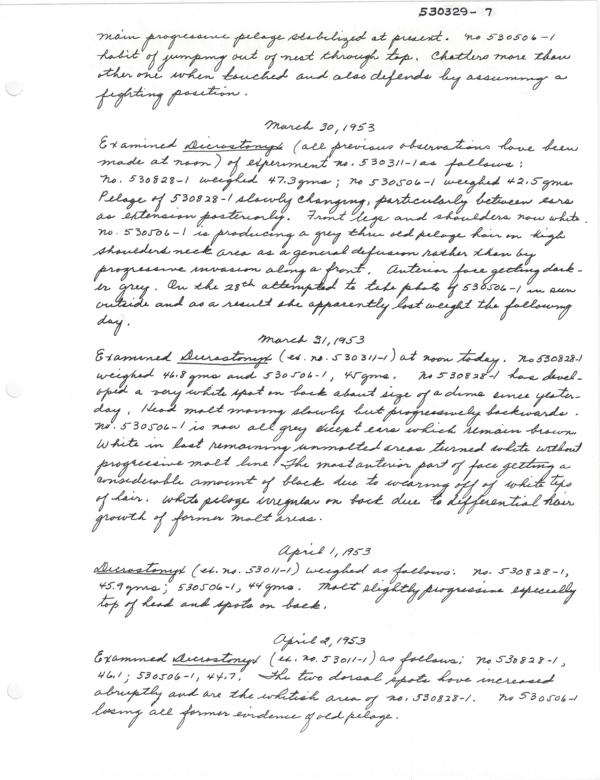 530329-7
main progressive pelage stabilized at present. No 530506-1
habit of jumping out of nest through top. Chatters more than
other one when touched and also defends by assuming a
fighting position.
March 30, 1953
Examined Dicrostonyx (all previous observations have been
made at noon) of experiment no. 530311-1 as follows:
No. 530828-1 weighed 47.3 gms; no 530506-1 weighed 42.5 gms.
Pelage of 530828-1 slowly changing, particularly between ears
as extension posteriorly. Front legs and shoulders now white.
No. 530506-1 is producing a grey thru old pelage hair on high
shoulders neck area as a general defusion rather than by
progressive invasion along a front. Anterior face getting dark-
er grey. On the 28th attempted to take photo of 530506-1 in sun
outside and as a result she apparently lost weight the following
day.
March 31, 1953
Examined Dicrostonyx (ex. no. 530311-1) at noon today. No 530828-1
weighed 46.8 gms and 530506-1, 45 gms. No 530828-1 has devel-
oped a very white spot on back about size of a dime since yester-
day. Head molt moving slowly but progressively backwards.
No. 530506-1 is now all grey except ears which remain brown.
White in last remaining unmolted areas turned white without
progressive molt line. The most anterior part of face getting a
considerable amount of black due to wearing off of white tips
of hair. White pelage irregular on back due to differential hair
growth of former molt areas.
April 1, 1953
Dicrostonyx (ex. no. 53011-1) weighed as follows: No. 530828-1,
45.9 gms; 530506-1, 44 gms. Molt slightly progressive especially
top of head and spots on back.
April 2, 1953
Examined Dicrostonyx (ex. no. 53011-1) as follows: No 530828-1,
46.1; 530506-1, 44.7. The two dorsal spots have increased
abruptly and are the whitish area of no. 530828-1. No 530506-1
losing all former evidence of old pelage.